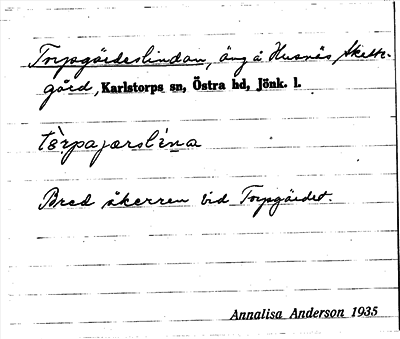 Torpgärdeslindan, äng å Husnäs skatte-
gård, Karlstorps sn, Östra hd, Jönk. l.
tèrpajærslína
Bred åkerren vid Torpgärdet.
Annalisa Anderson 1935